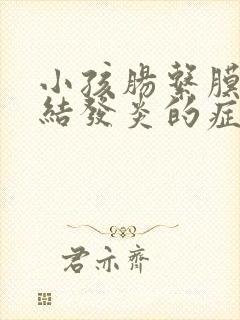 小孩腸繫膜
結發炎的症
君亦齊